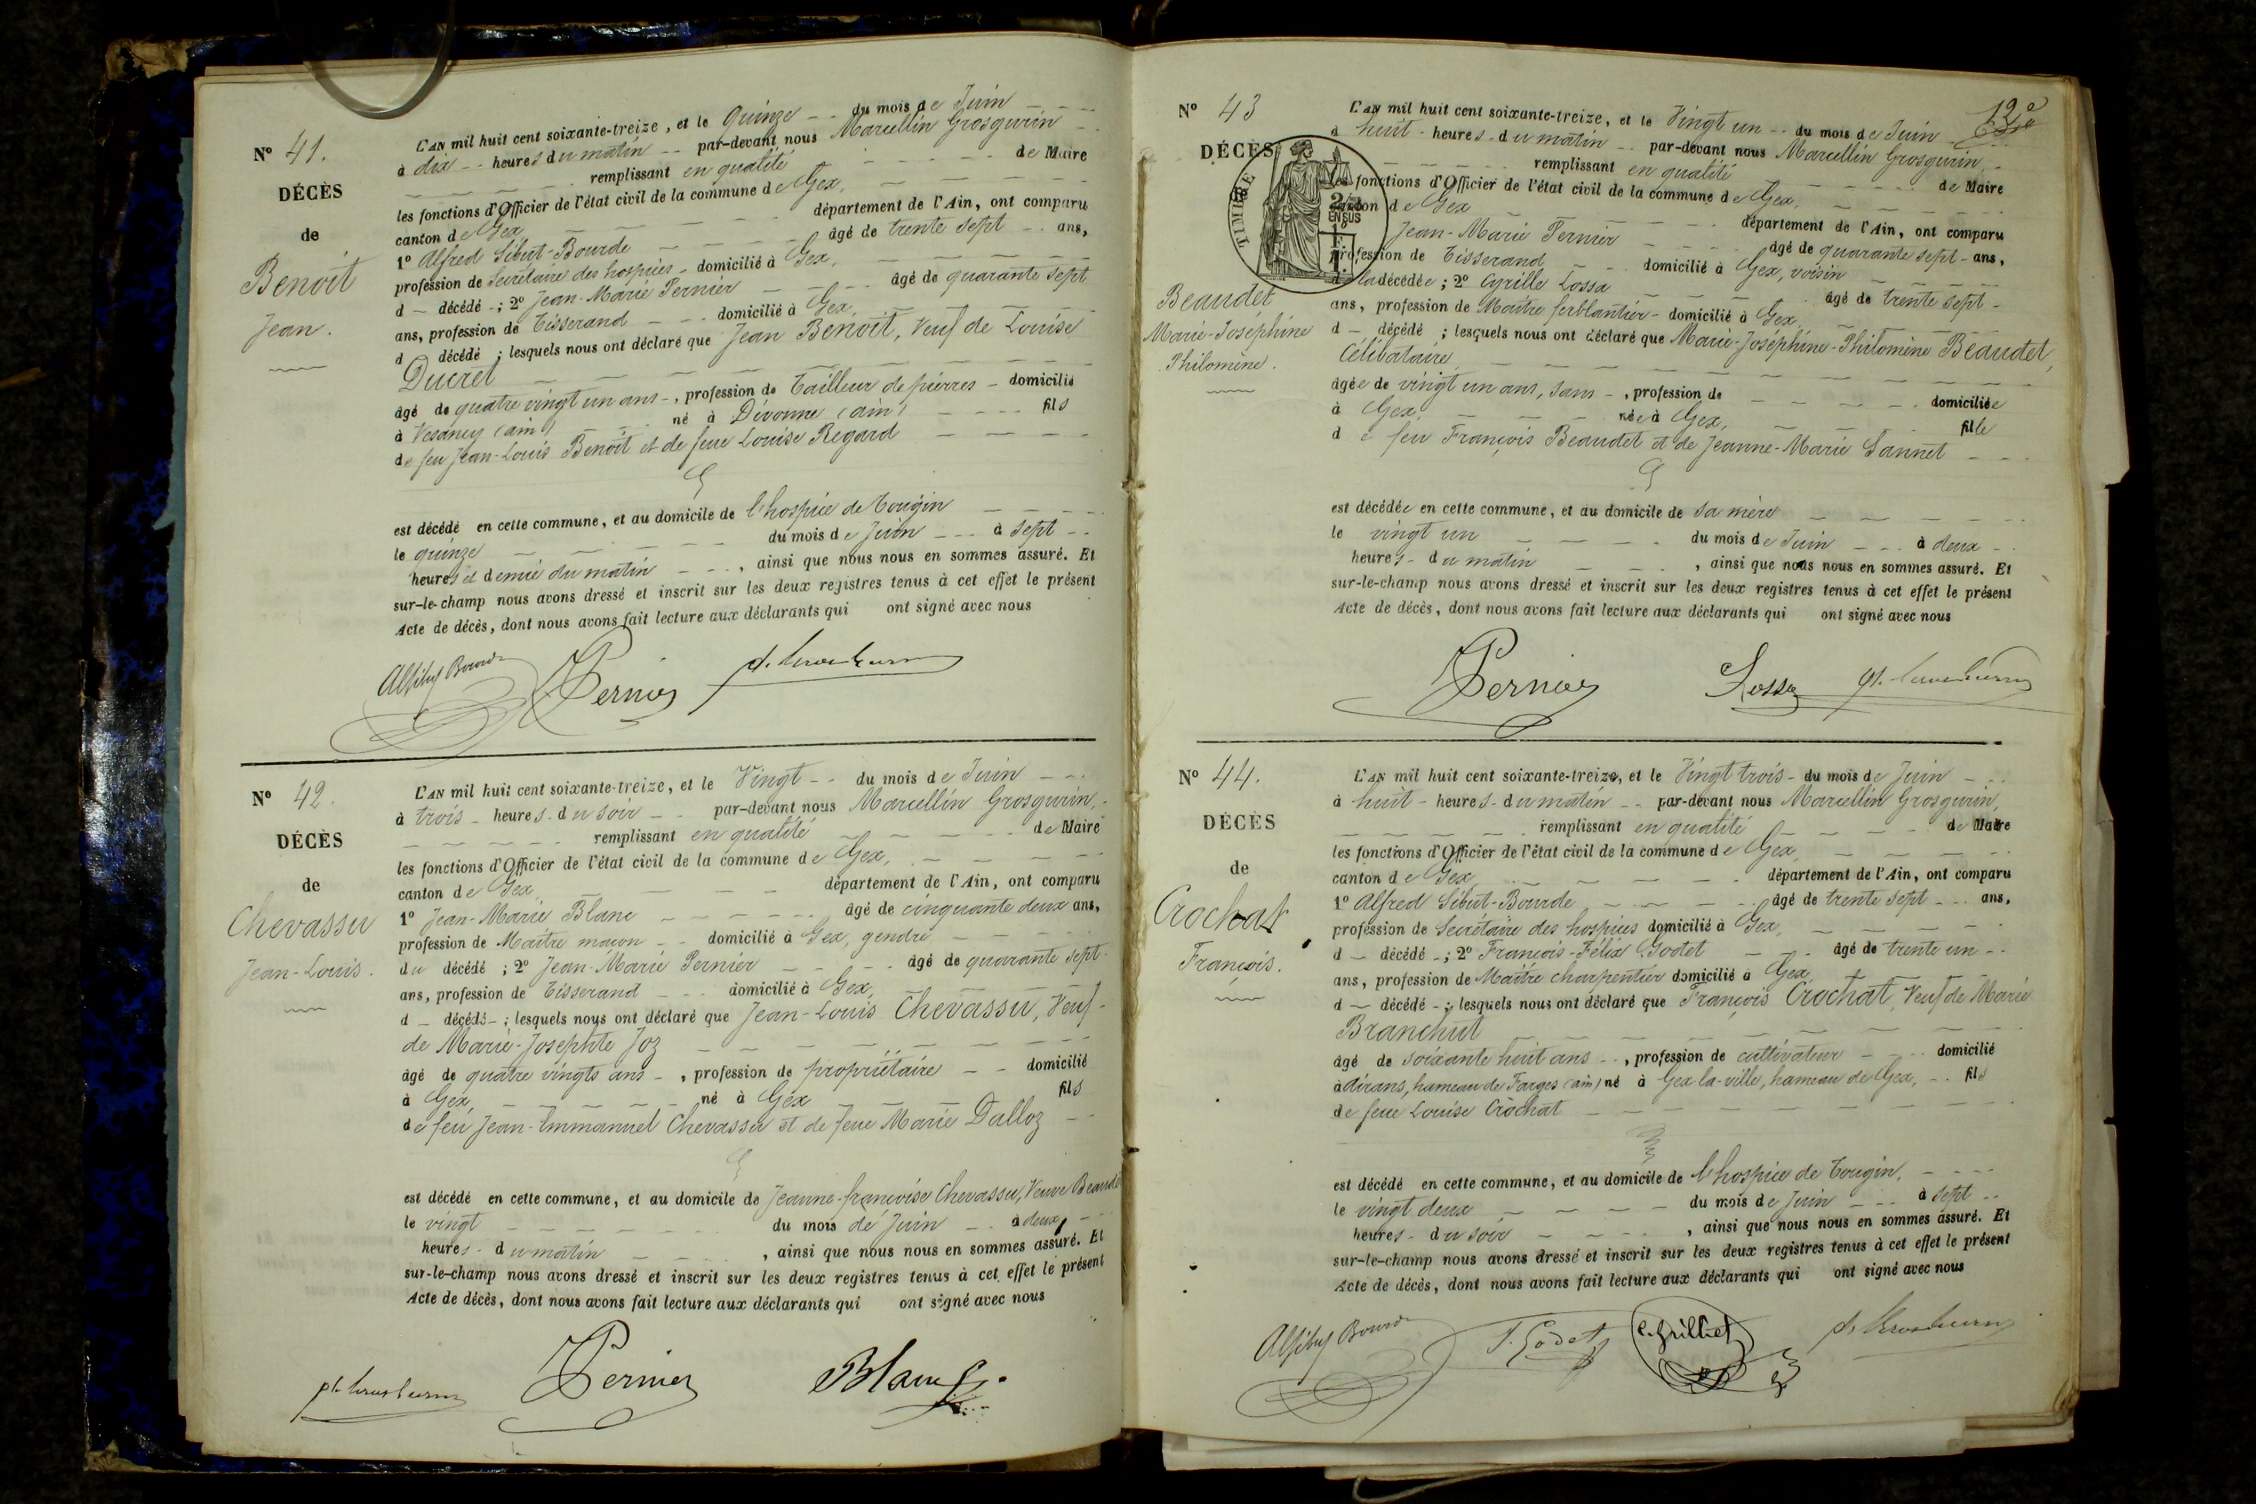 N° 41.
DÉCÈS
de
Benoit
Jean.
L'AN mil huit cent soixante-treize, et le quinze -- du mois de Juin
à dix -- heures du matin -- par-devant nous Marcellin Grosgurin
remplissant en qualité de Maire
les fonctions d'Officier de l'état civil de la commune de Gex,
canton de Gex département de l'Ain, ont comparu
1° Alfred Sibut-Bourde âgé de trente sept ans,
profession de Secrétaire des hospices - domicilié à Gex,
d - décédé -; 2° Jean-Marie Pernier âgé de quarante sept
ans, profession de Tisserand domicilié à Gex,
d décédé ; lesquels nous ont déclaré que Jean Benoit, Veuf de Louise
Ducret
âgé de quatre vingt un ans -, profession de Tailleur de pierres - domicilié
à Vesancy (ain) né à Divonne (ain) fils
de feu Jean-Louis Benoit et de feue Louise Regard
est décédé en cette commune, et au domicile de l'hospice de Tougin
le quinze du mois de Juin à sept
heures et demie du matin , ainsi que nous nous en sommes assuré. Et
sur-le-champ nous avons dressé et inscrit sur les deux registres tenus à cet effet le présent
Acte de décès, dont nous avons fait lecture aux déclarants qui ont signé avec nous
Pernier
N° 42.
DÉCÈS
de
Chevassu
Jean-Louis.
L'AN mil huit cent soixante-treize, et le Vingt -- du mois de Juin
à trois - heures du soir -- par-devant nous Marcellin Grosgurin,
remplissant en qualité de Maire
les fonctions d'Officier de l'état civil de la commune de Gex,
canton de Gex département de l'Ain, ont comparu
1° Jean-Marie Blanc âgé de cinquante deux ans,
profession de Maître maçon domicilié à Gex, gendre
du décédé ; 2° Jean-Marie Pernier âgé de quarante sept
ans, profession de Tisserand domicilié à Gex,
d - décédé - ; lesquels nous ont déclaré que Jean-Louis Chevassu, Veuf
de Marie-Josephte Joz
âgé de quatre vingts ans -, profession de propriétaire domicilié
à Gex, né à Gex fils
de feu Jean-Emmanuel Chevassu et de feue Marie Dalloz
est décédé en cette commune, et au domicile de Jeanne-françoise Chevassu, Veuve Beaudet
le vingt du mois de Juin à deux
heures du matin , ainsi que nous nous en sommes assuré. Et
sur-le-champ nous avons dressé et inscrit sur les deux registres tenus à cet effet le présent
Acte de décès, dont nous avons fait lecture aux déclarants qui ont signé avec nous
Pernier Blanc
12e
N° 43
DÉCÈS
TIMBRE
2/10
EN SUS
Beaudet
Marie-Joséphine
Philomène.
L'AN mil huit cent soixante-treize, et le Vingt un -- du mois de Juin
à huit - heures du matin -- par-devant nous Marcellin Grosgurin
remplissant en qualité de Maire
les fonctions d'Officier de l'état civil de la commune de Gex,
canton de Gex département de l'Ain, ont comparu
Jean-Marie Pernier âgé de quarante sept - ans,
profession de Tisserand domicilié à Gex, voisin
de la décédée ; 2° Cyrille Lossa âgé de trente sept -
ans, profession de Maître ferblantier - domicilié à Gex,
d - décédé ; lesquels nous ont déclaré que Marie-Joséphine-Philomène Beaudet,
Célibataire,
âgée de vingt un ans, sans -, profession de domiciliée
à Gex, née à Gex, fille
de feu François Beaudet et de Jeanne-Marie Lannet
est décédée en cette commune, et au domicile de sa mère
le vingt un du mois de Juin à deux
heures du matin , ainsi que nous nous en sommes assuré. Et
sur-le-champ nous avons dressé et inscrit sur les deux registres tenus à cet effet le présent
Acte de décès, dont nous avons fait lecture aux déclarants qui ont signé avec nous
Pernier Lossa
N° 44.
DÉCÈS
de
Crochat
François.
L'AN mil huit cent soixante-treize, et le Vingt trois - du mois de Juin
à huit - heures du matin -- par-devant nous Marcellin Grosgurin,
remplissant en qualité de Maire
les fonctions d'Officier de l'état civil de la commune de Gex,
canton de Gex département de l'Ain, ont comparu
1° Alfred Sibut-Bourde âgé de trente sept ans,
profession de Secrétaire des hospices domicilié à Gex,
d - décédé -; 2° François-Félix Godet âgé de trente un
ans, profession de Maître charpentier domicilié à Gex
d - décédé -; lesquels nous ont déclaré que François Crochat, Veuf de Marie
Branchut
âgé de soixante huit ans --, profession de cultivateur domicilié
à airans, hameau de Farges (ain) né à Gex-la-ville, hameau de Gex, fils
de feue Louise Crochat
est décédé en cette commune, et au domicile de l'hospice de Tougin,
le vingt deux du mois de Juin à sept
heures du soir , ainsi que nous nous en sommes assuré. Et
sur-le-champ nous avons dressé et inscrit sur les deux registres tenus à cet effet le présent
Acte de décès, dont nous avons fait lecture aux déclarants qui ont signé avec nous
F. Godet